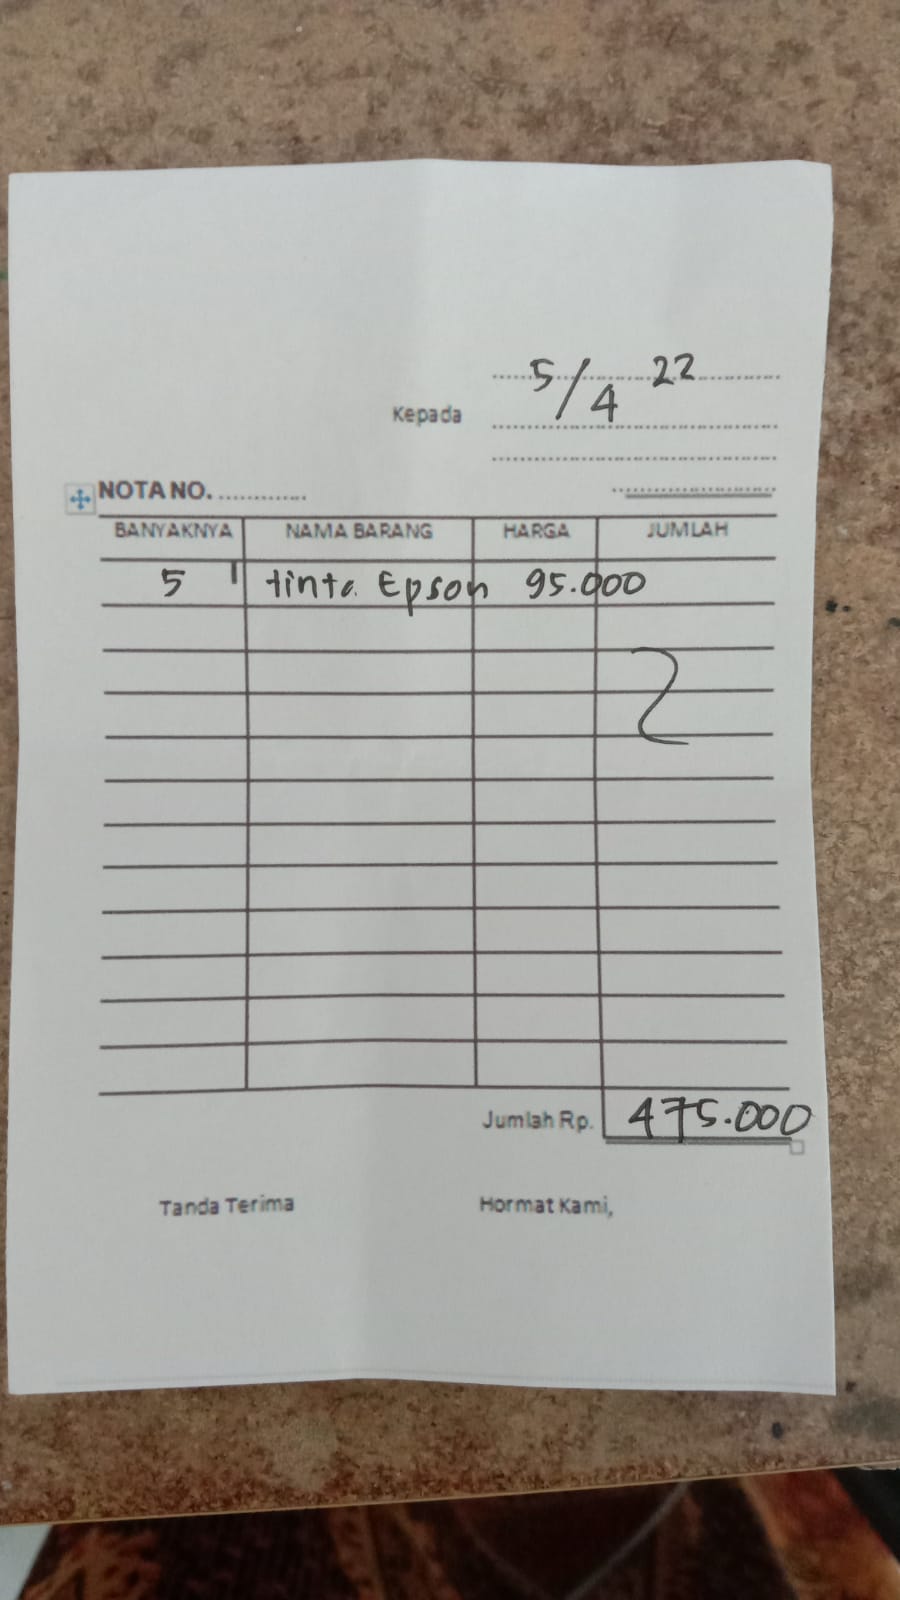 5/4 22
Kepada
NOTA NO. ............
BANYAKNYA NAMA BARANG HARGA JUMLAH
5 tinta Epson 95.000
Jumlah Rp. 475.000
Tanda Terima Hormat Kami,